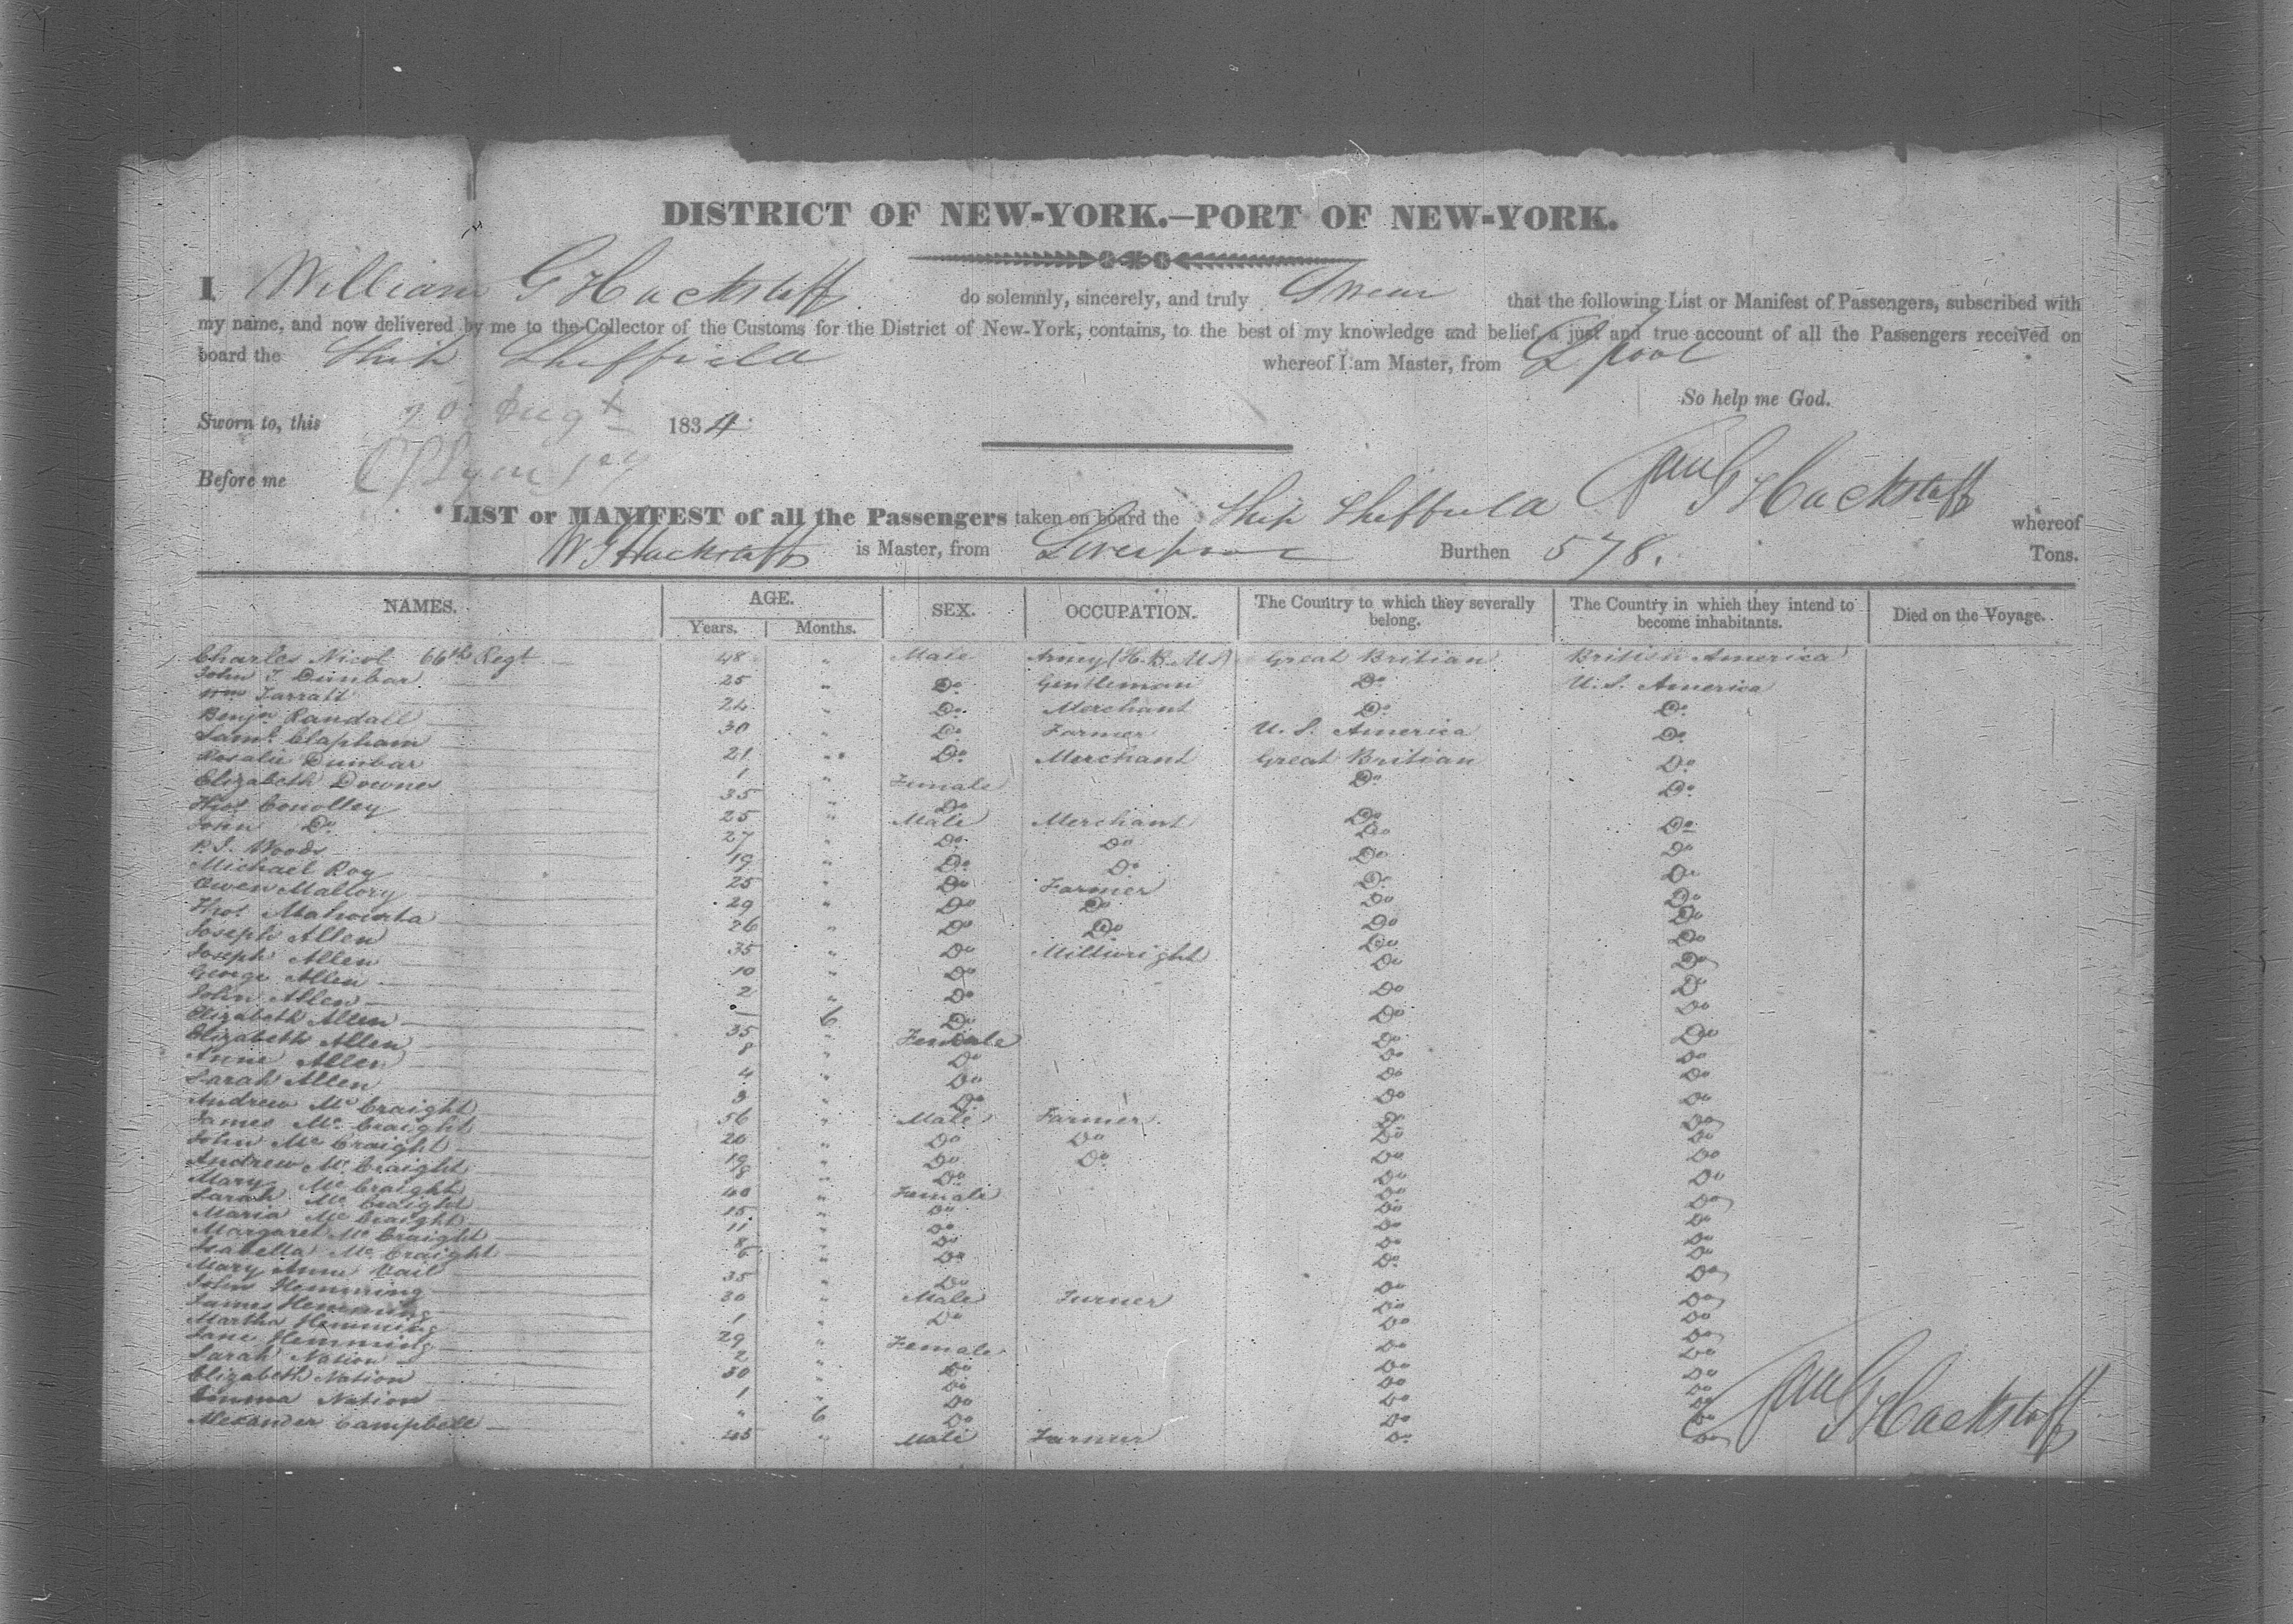 DISTRICT OF NEW-YORK.—PORT OF NEW-YORK.
I William G Hackstaff do solemnly, sincerely, and truly Swear that the following List or Manifest of Passengers, subscribed with
my name, and now delivered by me to the Collector of the Customs for the District of New-York, contains, to the best of my knowledge and belief, a just and true account of all the Passengers received on
board the Ship Sheffield whereof I am Master, from L'pool
So help me God.
Sworn to, this 20 Augt 1834
Before me
G Hackstaff
LIST or MANIFEST of all the Passengers taken on board the Ship Sheffield whereof
W G Hackstaff is Master, from Liverpool Burthen 578. Tons.
NAMES. AGE. SEX. OCCUPATION. The Country to which they severally belong. The Country in which they intend to become inhabitants. Died on the Voyage.
Years. Months.
Charles Nicol 66th Regt 48 " Male Army (H.B.M.S) Great Britian British America
John T Dunbar 25 " Do Gentleman Do U.S. America
Wm Jarratt 24 " Do Merchant Do Do
Benjn Randall 30 " Do Farmer U.S. America Do
Saml Clapham 21 " Do Merchant Great Britian Do
Rosalie Dunbar 1 " Female Do Do
Elizabeth Downes 35 " Do Do Do
Thos Conolley 25 " Male Merchant Do Do
John Do 27 " Do Do Do Do
P. J. Woods 19 " Do Do Do Do
Michael Roy 25 " Do Farmer Do Do
Owen Mallory 29 " Do Do Do Do
Thos 26 " Do Do Do Do
Joseph Allen 35 " Do Millwright Do Do
Joseph Allen 10 " Do Do Do
George Allen 2 " Do Do Do
John Allen — 6 Do Do Do
Elizabeth Allen 35 " Female Do Do
Elizabeth Allen 8 " Do Do Do
Anne Allen 4 " Do Do Do
Sarah Allen 3 " Do Do Do
Andrew McCraight 56 " Male Farmer Do Do
James McCraight 20 " Do Do Do Do
John McCraight 19 " Do Do Do Do
Andrew McCraight 8 " Do Do Do
Mary McCraight 40 " Female Do Do
Sarah McCraight 15 " Do Do Do
Maria McCraight 11 " Do Do Do
Margaret McCraight 8 " Do Do Do
Isabella McCraight 6 " Do Do Do
Mary Anne Vail 35 " Do Do Do
John Hemming 30 " Male Turner Do Do
James Hemming 1 " Do Do Do
Martha Hemming 29 " Female Do Do
Jane Hemming 2 " Do Do Do
Sarah Nation 30 " Do Do Do
Elizabeth Nation 1 " Do Do Do
Emma Nation " 6 Do Do Do
Alexander Campbell 45 " Male Farmer Do Do
G Hackstaff